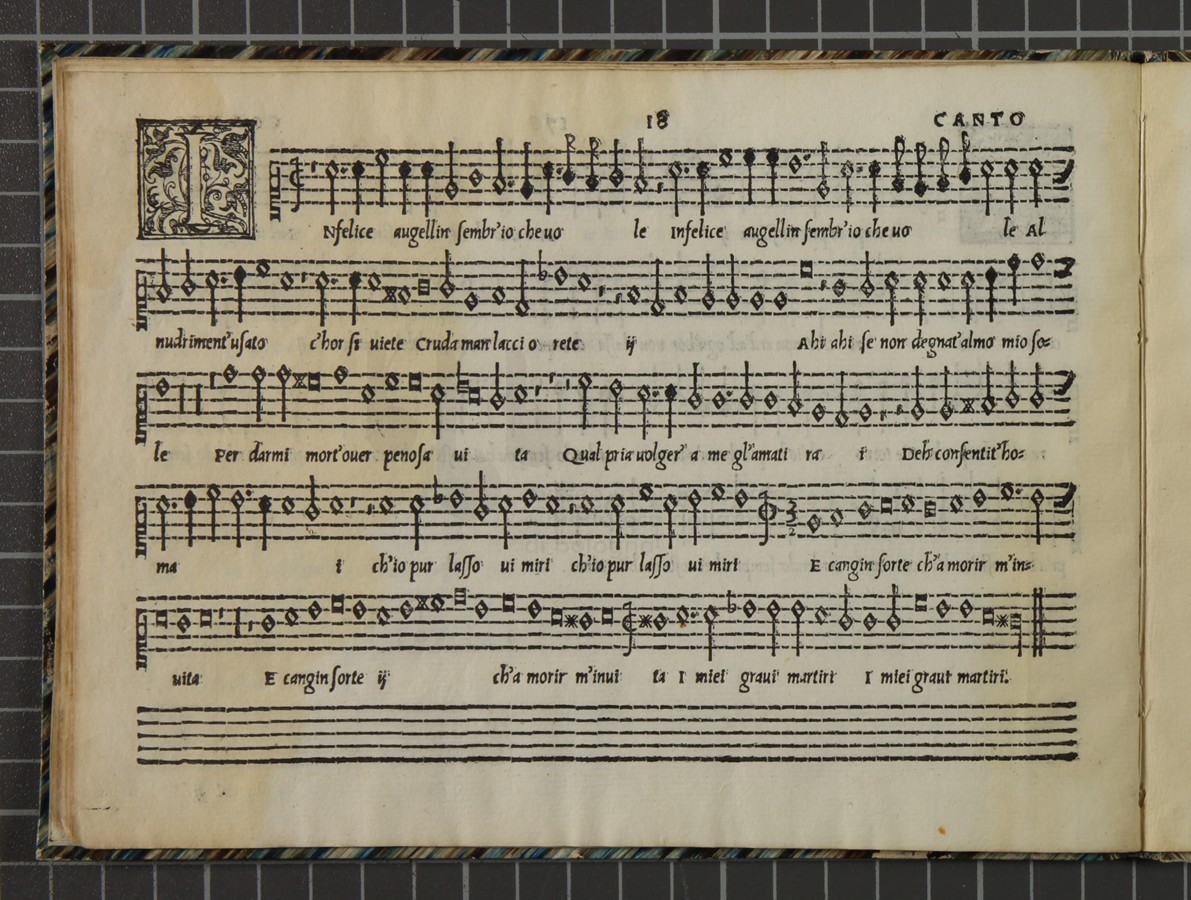 18 CANTO
INfelice augellin sembr'io che uo le Infelice augellin sembr'io che uo le Al
nudriment'usato c'hor si uiete Cruda man lacci o rete ij Ahi ahi se non degnat'almo mio so=
le Per darmi mort'ouer penosa ui ta Qual pria uolger' a me gl'amati ra i Deh consentit'ho=
ma i ch'io pur lasso ui miri ch'io pur lasso ui miri E cangin sorte ch'a morir m'in=
uita E cangin sorte ij ch'a morir m'inui ta I miei graui martiri I miei graui martiri.